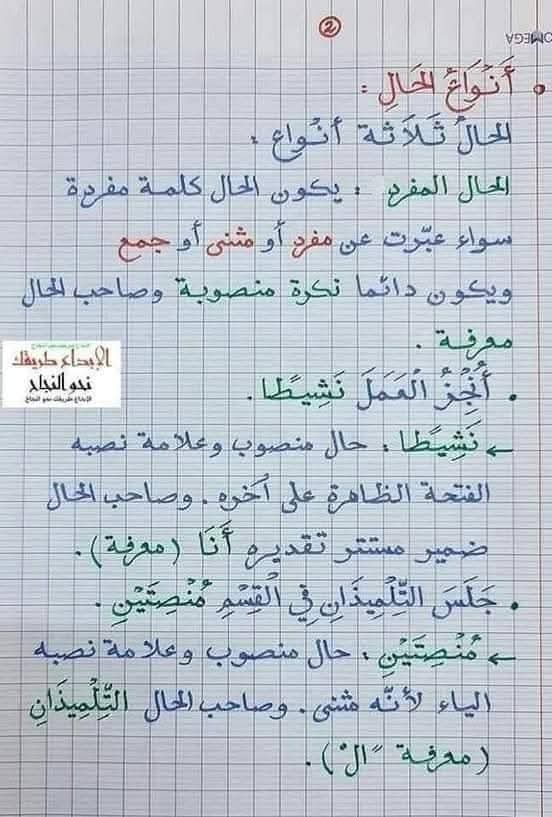 2
OMEGA
• أَنْوَاعُ الحَالِ :
الحالُ ثَلَاثَة أنْواع :
الحال المفرد : يكون الحال كلمة مفردة
سواء عبّرت عن مفرد أو مثنى أو جمع
ويكون دائما نكرة منصوبة وصاحب الحال
معرفة .
الإبداع طريقك
نحو النجاح
الإبداع طريقك نحو النجاح
• أُنْجِزُ الْعَمَلَ نَشِيطًا .
← نَشِيطًا : حال منصوب وعلامة نصبه
الفتحة الظاهرة على آخره . وصاحب الحال
ضمير مستتر تقديره أَنَا (معرفة) .
• جَلَسَ التِّلْمِيذَانِ فِي الْقِسْمِ مُنْصِتَيْنِ .
← مُنْصِتَيْنِ : حال منصوب وعلامة نصبه
الياء لأنّه مثنى . وصاحب الحال التِّلْمِيذَانِ
(معرفة "ال") .